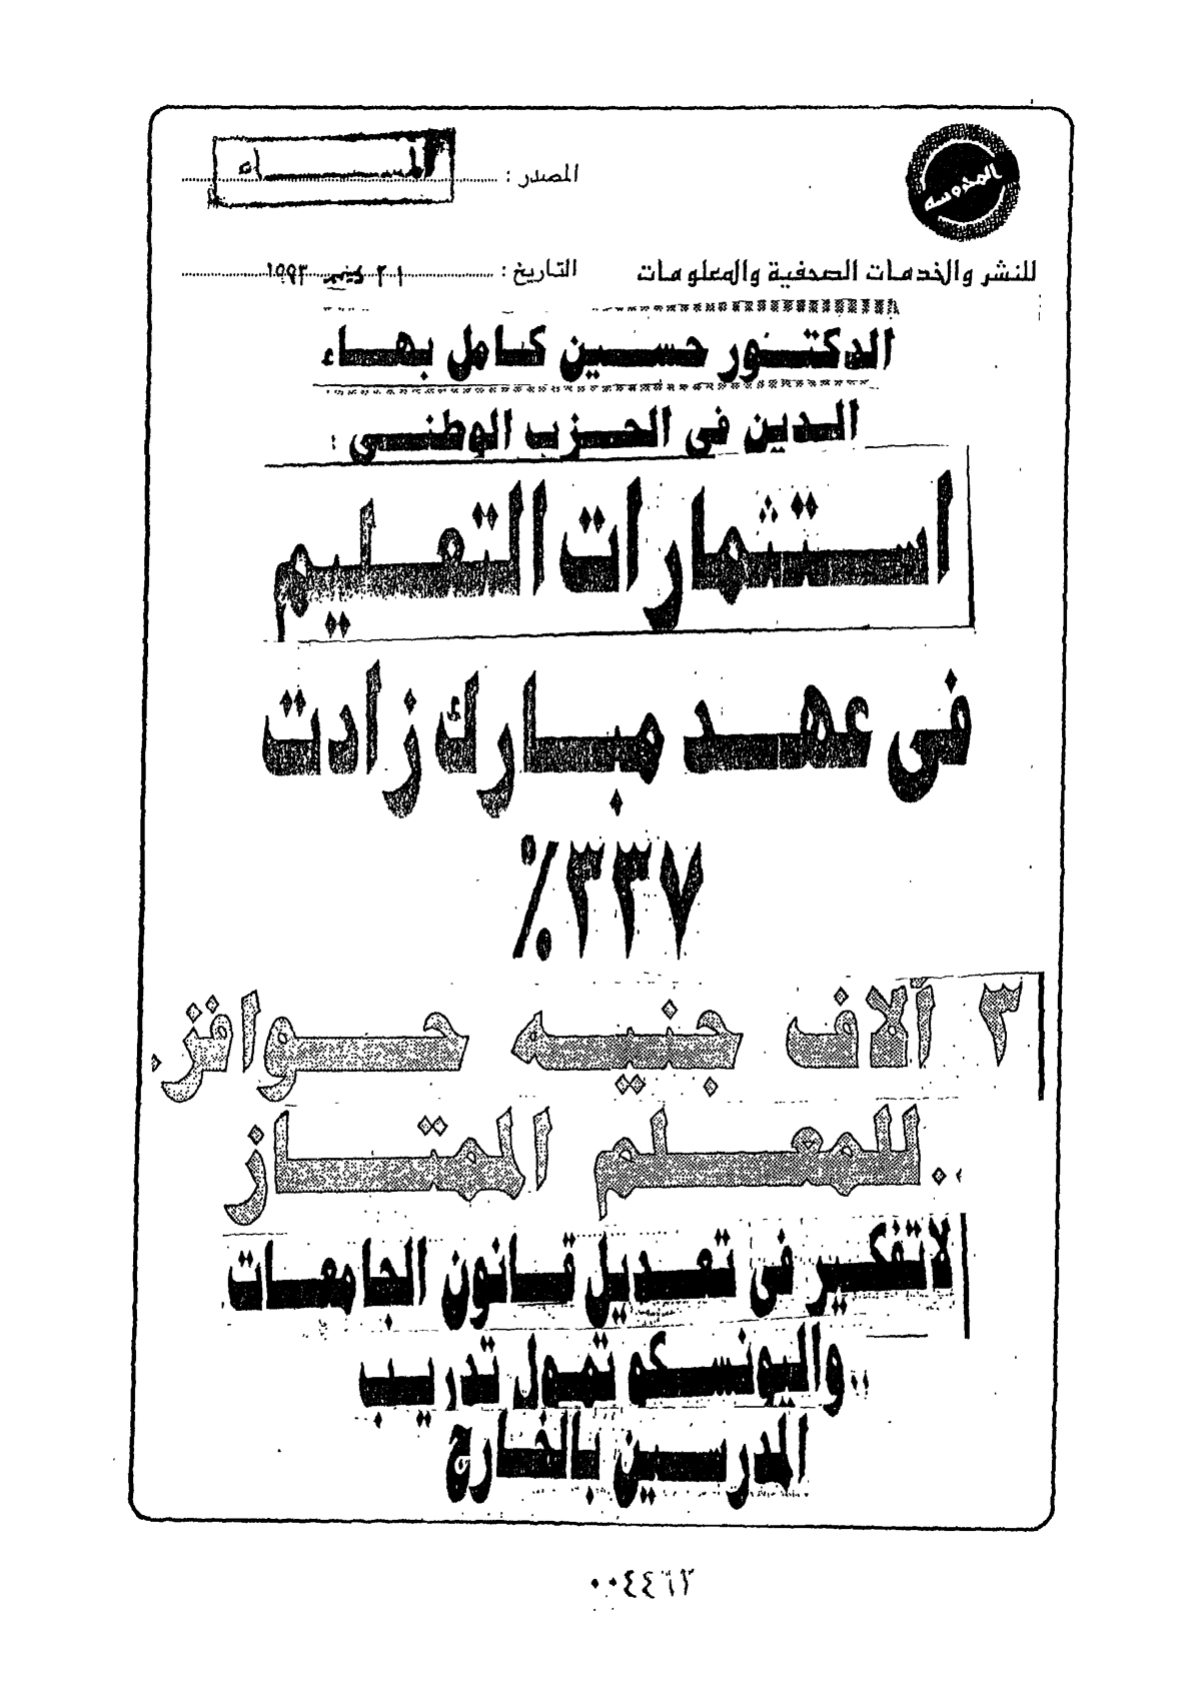 المصدر : المساء
المدوسه
للنشر والخدمات الصحفية والمعلومات
التاريخ : ٢١ ديسمبر ١٩٩٣
الدكتور حسين كامل بهاء
الدين فى الحزب الوطنى :
استثمارات التعليم
فى عهد مبارك زادت
٣٣٧٪
٣ آلاف جنيه حوافز
.. للمعلم الممتاز
لاتفكير فى تعديل قانون الجامعات
.. واليونسكو تمول تدريب
المدرسين بالخارج